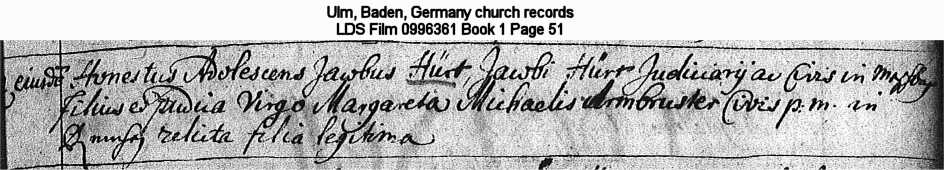 Ulm, Baden, Germany church records
LDS Film 0996361 Book 1 Page 51
ejusd Honestus Adolescens Jacobus Hürt, Jacobi Hürt Judiciarij ac Civis in
filius et pudica Virgo Margareta Michaelis Armbruster Civis p.m. in
relicta filia legitima